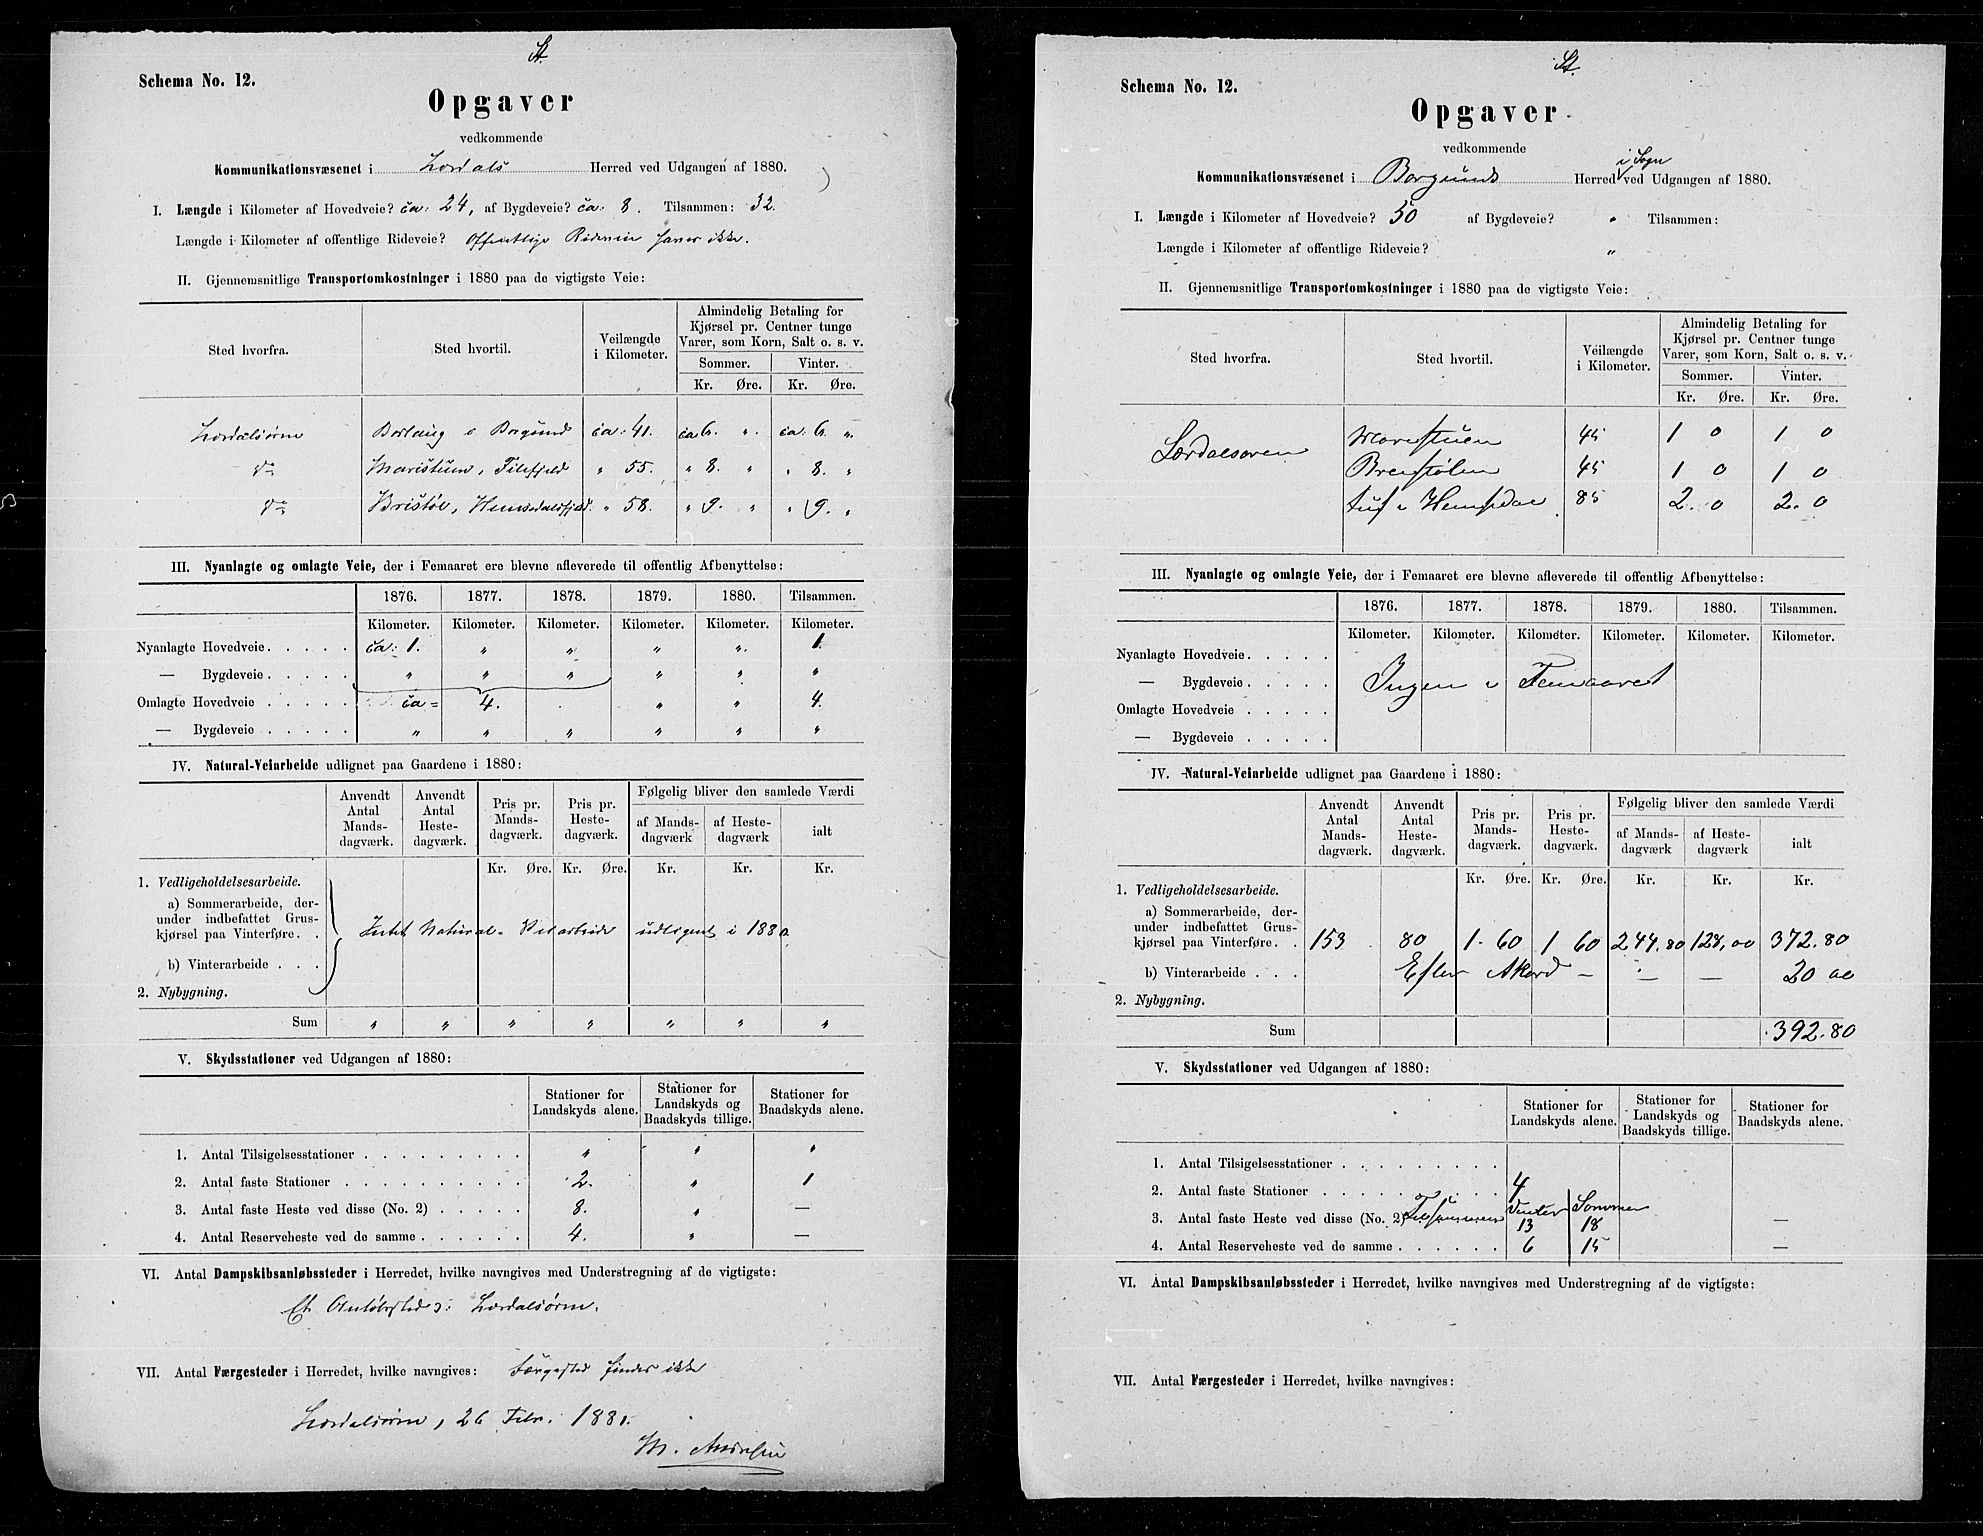 St.
Schema No. 12.
Opgaver
vedkommende
Kommunikationsvæsenet i Lærdals Herred ved Udgangen af 1880.
I. Længde i Kilometer af Hovedveie? ca: 24, af Bygdeveie? ca: 8. Tilsammen: 32.
Længde i Kilometer af offentlige Rideveie? Offentlige Rideveie haves ikke.
II. Gjennemsnitlige Transportomkostninger i 1880 paa de vigtigste Veie:
Sted hvorfra. Sted hvortil. Veilængde i Kilometer. Almindelig Betaling for Kjørsel pr. Centner tunge Varer, som Korn, Salt o. s. v.
Sommer. Vinter.
Kr. Øre. Kr. Øre.
Lærdalsøren Borlaug i Borgund ca: 41. ca 6. „ ca: 6. „
do Maristuen, Filefjeld „ 55. „ 8. „ „ 8. „
do Bristøl, Hemsedalsfjeld. „ 58. „ 9. „ „ 9. „
III. Nyanlagte og omlagte Veie, der i Femaaret ere blevne afleverede til offentlig Afbenyttelse:
1876. 1877. 1878. 1879. 1880. Tilsammen.
Kilometer. Kilometer. Kilometer. Kilometer. Kilometer. Kilometer.
Nyanlagte Hovedveie . . . . . ca: 1. „ „ „ „ 1.
— Bygdeveie . . . . . „ „ „ „ „ „
Omlagte Hovedveie . . . . . ca = 4. „ „ 4.
— Bygdeveie . . . . . „ „ „ „ „ „
IV. Natural-Veiarbeide udlignet paa Gaardene i 1880:
Anvendt Antal Mandsdagværk. Anvendt Antal Hestedagværk. Pris pr. Mandsdagværk. Pris pr. Hestedagværk. Følgelig bliver den samlede Værdi
af Mandsdagværk af Hestedagværk ialt
Kr. Øre. Kr. Øre. Kr. Kr. Kr.
1. Vedligeholdelsesarbeide.
a) Sommerarbeide, derunder indbefattet Gruskjørsel paa Vinterføre. .
Intet Natural-Veiarbeide udlignet i 1880.
b) Vinterarbeide . . .
2. Nybygning.
Sum „ „ „ „ „ „ „
V. Skydsstationer ved Udgangen af 1880:
Stationer for Landskyds alene. Stationer for Landskyds og Baadskyds tillige. Stationer for Baadskyds alene.
1. Antal Tilsigelsesstationer . . . . . . . . . „ „ „
2. Antal faste Stationer . . . . . . . . . . . 2. „ 1
3. Antal faste Heste ved disse (No. 2) . . . . . 8. „ —
4. Antal Reserveheste ved de samme . . . . . . 4. „ —
VI. Antal Dampskibsanløbssteder i Herredet, hvilke navngives med Understregning af de vigtigste:
Et Anløbssted: Lærdalsøren.
VII. Antal Færgesteder i Herredet, hvilke navngives: Færgested findes ikke
Lærdalsøren, 26 Febr. 1881.
M. Andresen
St.
Schema No. 12.
Opgaver
vedkommende
Kommunikationsvæsenet i Borgunds Herred i Sogn ved Udgangen af 1880.
I. Længde i Kilometer af Hovedveie? 50 af Bygdeveie? „ Tilsammen:
Længde i Kilometer af offentlige Rideveie? „
II. Gjennemsnitlige Transportomkostninger i 1880 paa de vigtigste Veie:
Sted hvorfra. Sted hvortil. Veilængde i Kilometer. Almindelig Betaling for Kjørsel pr. Centner tunge Varer, som Korn, Salt o. s. v.
Sommer. Vinter.
Kr. Øre. Kr. Øre.
Lærdalsøren Marestuen 45 1 0 1 0
Breistølen 45 1 0 1 0
Tuf i Hemsedal 85 2. 0 2. 0
III. Nyanlagte og omlagte Veie, der i Femaaret ere blevne afleverede til offentlig Afbenyttelse:
1876. 1877. 1878. 1879. 1880. Tilsammen.
Kilometer. Kilometer. Kilometer. Kilometer. Kilometer. Kilometer.
Nyanlagte Hovedveie . . . . .
— Bygdeveie . . . . . Ingen i Femaaret
Omlagte Hovedveie . . . . .
— Bygdeveie . . . . .
IV. Natural-Veiarbeide udlignet paa Gaardene i 1880:
Anvendt Antal Mandsdagværk. Anvendt Antal Hestedagværk. Pris pr. Mandsdagværk. Pris pr. Hestedagværk. Følgelig bliver den samlede Værdi
af Mandsdagværk af Hestedagværk ialt
Kr. Øre. Kr. Øre. Kr. Kr. Kr.
1. Vedligeholdelsesarbeide.
a) Sommerarbeide, derunder indbefattet Gruskjørsel paa Vinterføre. . 153 80 1. 60 1 60 244.80 128,00 372.80
b) Vinterarbeide . . . Efter Akord — — — 20 00
2. Nybygning.
Sum 392.80
V. Skydsstationer ved Udgangen af 1880:
Stationer for Landskyds alene. Stationer for Landskyds og Baadskyds tillige. Stationer for Baadskyds alene.
1. Antal Tilsigelsesstationer . . . . . . . . .
2. Antal faste Stationer . . . . . . . . . . . 4
Vinter Sommer
3. Antal faste Heste ved disse (No. 2) Tilsammen 13 18 —
4. Antal Reserveheste ved de samme . . . . . . 6 15 —
VI. Antal Dampskibsanløbssteder i Herredet, hvilke navngives med Understregning af de vigtigste:
VII. Antal Færgesteder i Herredet, hvilke navngives: